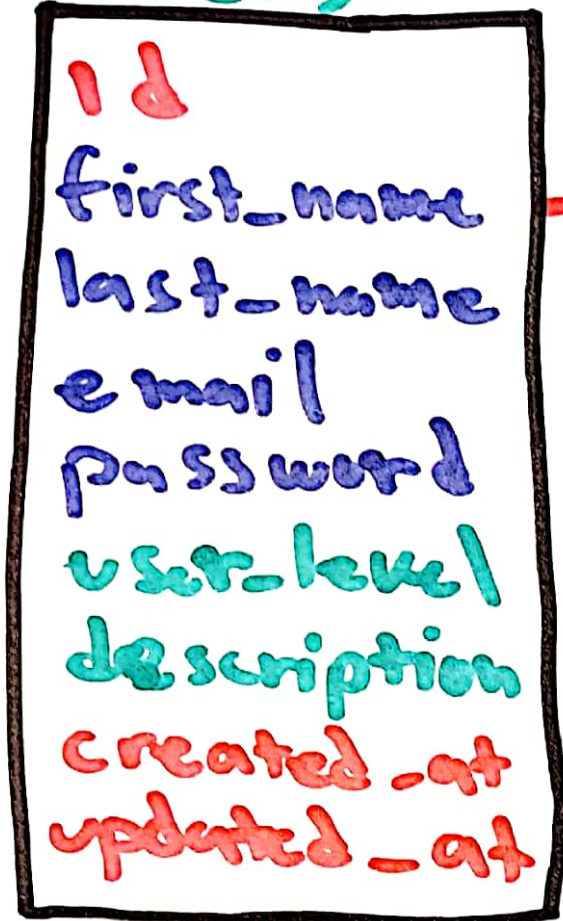 id
first_name
last_name
email
password
user_level
description
created_at
updated_at